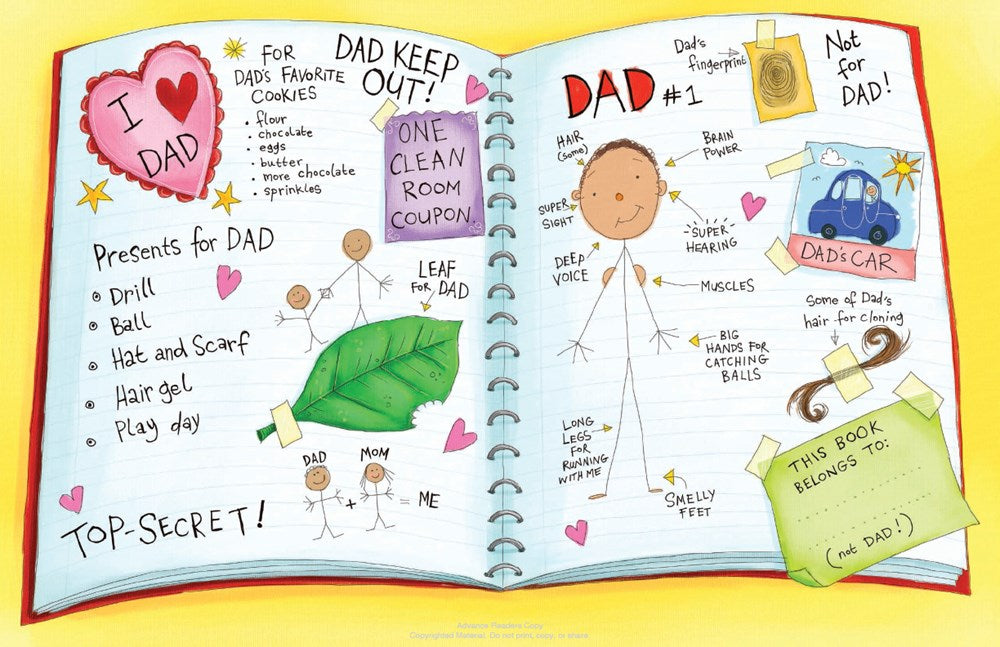 I
DAD
FOR
DAD'S FAVORITE
COOKIES
• flour
• chocolate
• eggs
• butter
• more chocolate
• sprinkles
DAD KEEP
OUT!
ONE
CLEAN
ROOM
COUPON.
Presents for DAD
Drill
Ball
Hat and Scarf
Hair gel
Play day
LEAF
FOR DAD
DAD
MOM
+
= ME
TOP-SECRET!
DAD #1
Dad's
fingerprint
Not
for
DAD!
HAIR
(some)
BRAIN
POWER
SUPER
SIGHT
SUPER
HEARING
DEEP
VOICE
MUSCLES
BIG
HANDS FOR
CATCHING
BALLS
LONG
LEGS
FOR
RUNNING
WITH ME
SMELLY
FEET
DAD'S CAR
Some of Dad's
hair for cloning
THIS BOOK
BELONGS TO:
(not DAD!)
Advance Readers Copy
Copyrighted Material. Do not print, copy, or share.